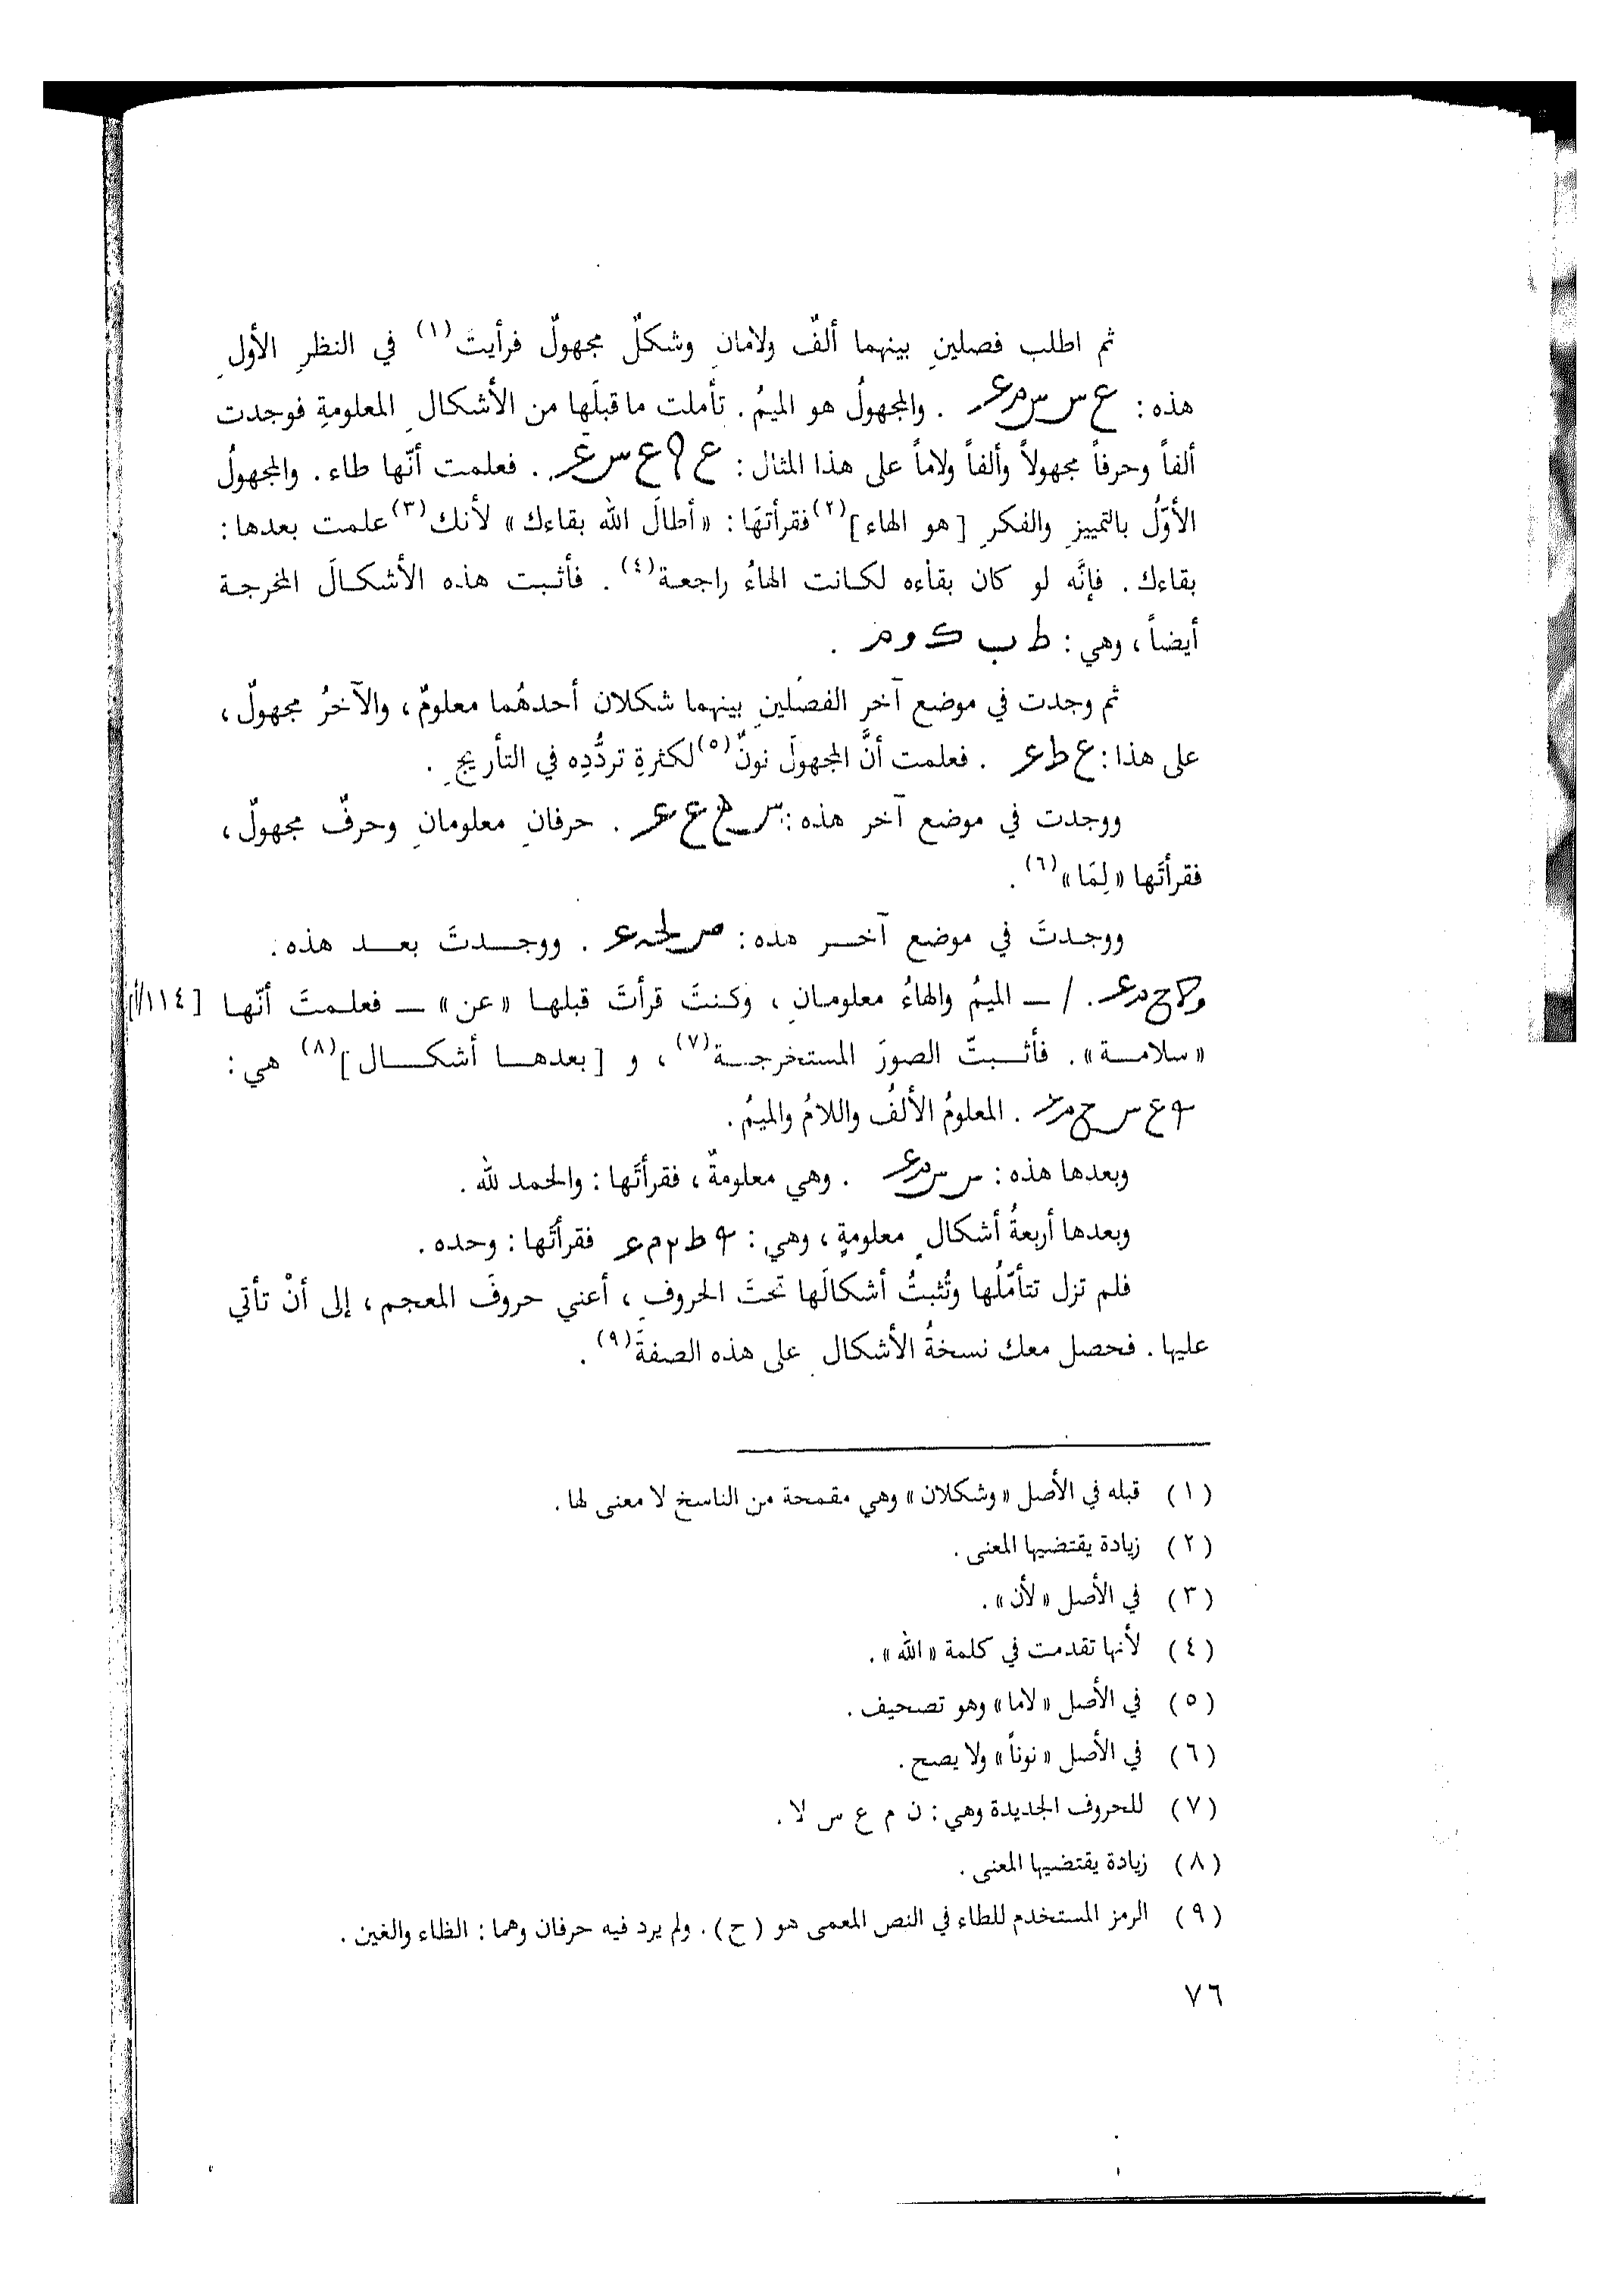 ثم اطلب فصلينِ بينهما ألفٌ ولامانِ وشكلٌ مجهولٌ فرأيت(١) في النظرِ الأولِ
هذه: . والمجهولُ هو الميمُ. تأملت ماقبلَها من الأشكالِ المعلومةِ فوجدت
ألفاً وحرفاً مجهولاً وألفاً ولاماً على هذا المثال: . فعلمت أنّها طاء. والمجهولُ
الأوّلُ بالتمييزِ والفكرِ [هو الهاء](٢) فقرأتَها: «أطالَ الله بقاءك» لأنك(٣) علمت بعدها:
بقاءك. فإنَّه لو كان بقاءه لكانت الهاءُ راجعة(٤). فأثبت هذه الأشكالَ المخرجة
أيضاً، وهي: ط ب ك و م .
ثم وجدت في موضع آخر الفصلينِ بينهما شكلان أحدهُما معلومٌ، والآخرُ مجهولٌ،
على هذا: ع ط ع . فعلمت أنَّ المجهولَ نونٌ(٥) لكثرةِ تردُّدِه في التأريخِ .
ووجدت في موضع آخر هذه: . حرفانِ معلومانِ وحرفٌ مجهولٌ،
فقرأتَها «لِمَا»(٦).
ووجدتَ في موضع آخر هذه: . ووجدتَ بعد هذه.
. / ــ الميمُ والهاءُ معلومانِ، وكنتَ قرأتَ قبلها «عن» ــ فعلمتَ أنّها [١١٤/أ]
«سلامة». فأثبتّ الصورَ المستخرجة(٧)، و [بعدها أشكال](٨) هي:
. المعلومُ الألفُ واللامُ والميمُ.
وبعدها هذه: . وهي معلومةٌ، فقرأتَها: والحمد لله.
وبعدها أربعةُ أشكالٍ معلومةٍ، وهي: فقرأتَها: وحده.
فلم تزل تتأمّلُها وتُثبتُ أشكالَها تحتَ الحروفِ، أعني حروفَ المعجم، إلى أنْ تأتي
عليها. فحصل معك نسخةُ الأشكالِ على هذه الصفة(٩).
(١) قبله في الأصل «وشكلان» وهي مقمحة من الناسخ لا معنى لها.
(٢) زيادة يقتضيها المعنى.
(٣) في الأصل «لأن».
(٤) لأنها تقدمت في كلمة «الله».
(٥) في الأصل «لاما» وهو تصحيف.
(٦) في الأصل «نوناً» ولا يصح.
(٧) للحروف الجديدة وهي: ن م ع س لا.
(٨) زيادة يقتضيها المعنى.
(٩) الرمز المستخدم للطاء في النص المعمى هو (ح). ولم يرد فيه حرفان وهما: الظاء والغين.
٧٦